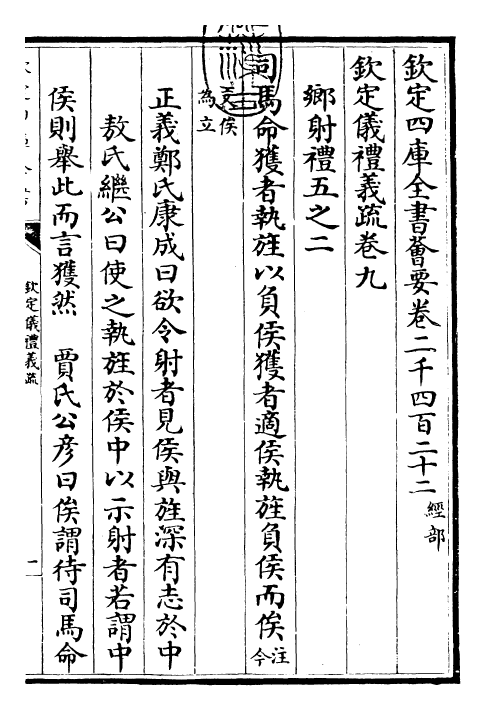 欽定四庫全書薈要卷二千四百二十二 經部
欽定儀禮義疏卷九
鄉射禮五之二
司馬命獲者執旌以負侯獲者適侯執旌負侯而俟 注今
文俟
為立
正義鄭氏康成曰欲令射者見侯與旌深有志於中
敖氏繼公曰使之執旌於侯中以示射者若謂中
侯則舉此而言獲然 賈氏公彥曰俟謂待司馬命
欽定儀禮義疏
二